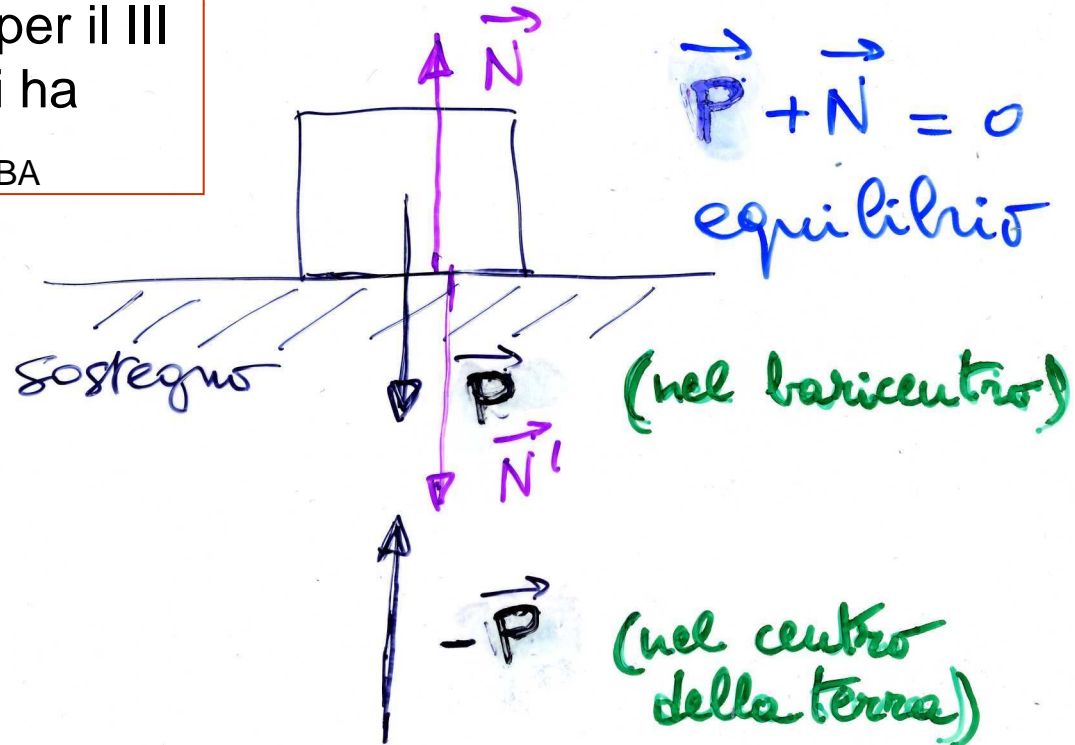 per il III
i ha
BA
N
P + N = 0
equilibrio
sostegno
P
(nel baricentro)
N'
-P
(nel centro
della terra)